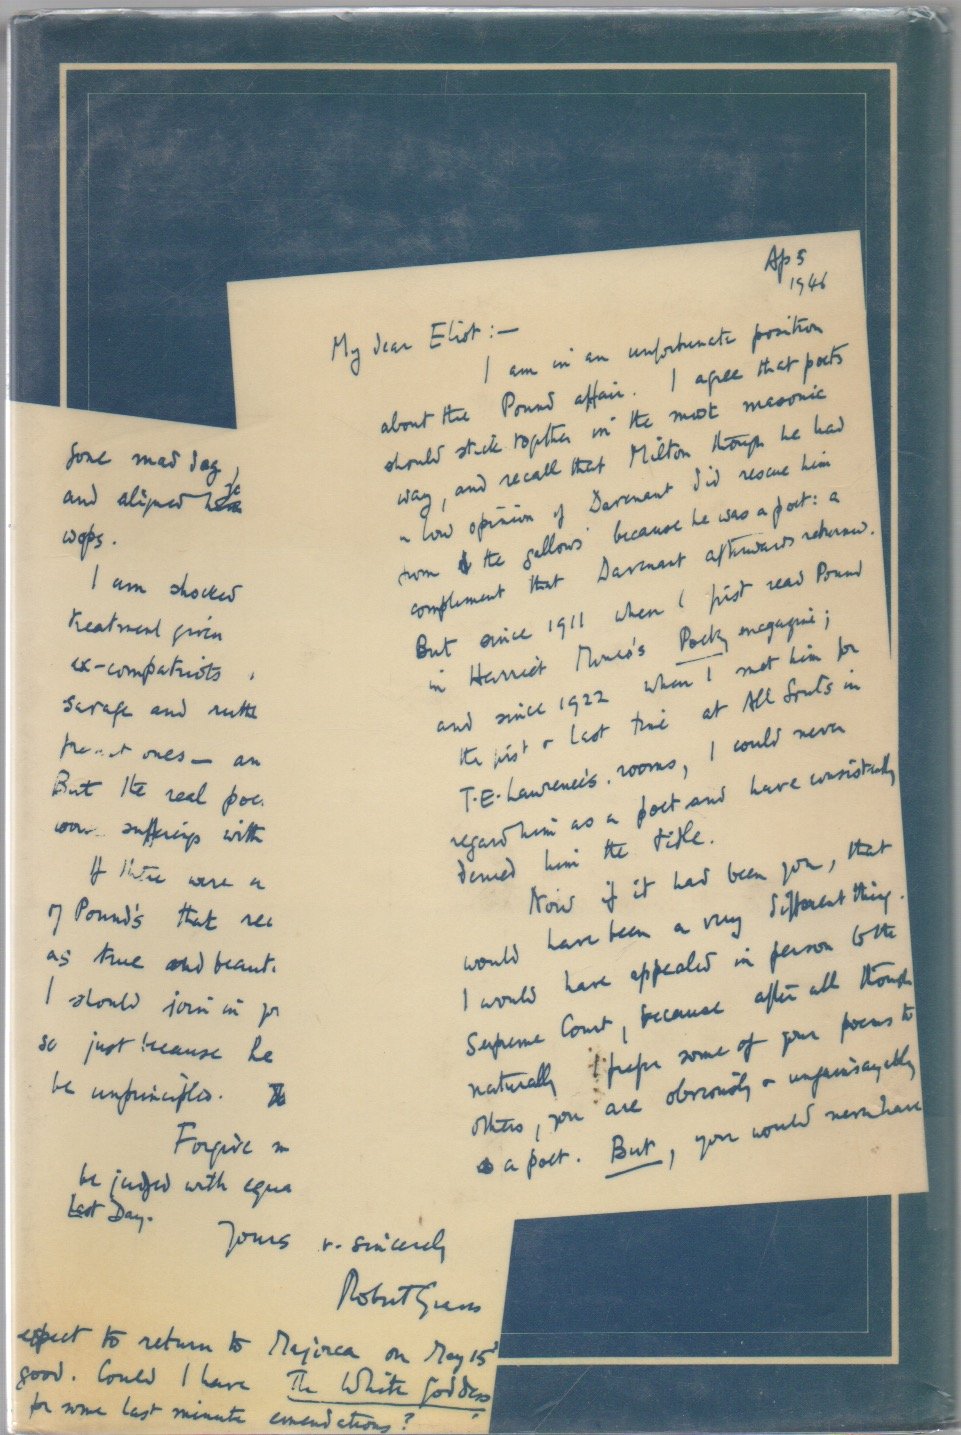 Ap 5
1946
My dear Eliot :—
I am in an unfortunate position
about the Pound affair. I agree that poets
should stick together in the most masonic
way, and recall that Milton though he had
a low opinion of Davenant did rescue him
from the gallows because he was a poet: a
complement that Davenant afterwards returned.
But since 1911 when I first read Pound
in Harriet Munro's Poetry magazine;
and since 1922 when I met him for
the first & last time at All Souls in
T.E. Lawrence's rooms, I could never
regard him as a poet and have consistently
denied him the title.
Now if it had been you, that
would have been a very different thing.
I would have appealed in person to the
Supreme Court, because after all though
naturally I prefer some of your poems to
others, you are obviously & ungainsayably
a poet. But, you would never have
gone mad dog,
and aligned
wops.
I am shocked
treatment given
ex-compatriots
savage and ruthl
ones — an
But the real poe
sufferings with
If there were a
of Pound's that rea
as true and beaut
I should join in yo
so just because he
be unprincipled.
Forgive m
be judged with equa
Last Day.
Yours v. sincerely
Robert Graves
expect to return to Majorca on May 15
good. Could I have The White Goddess
for some last minute emendations?